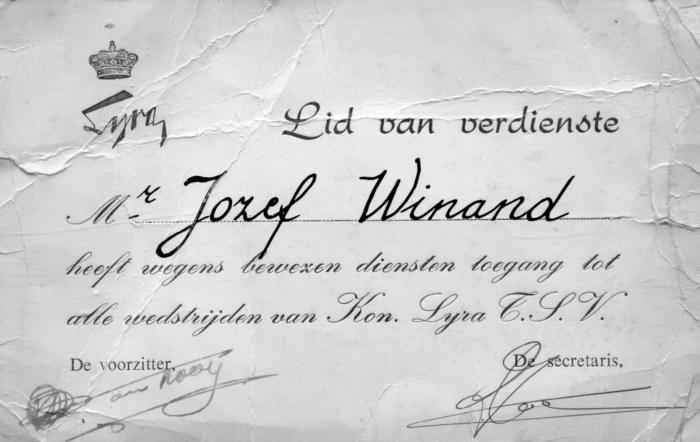 Lyra
Lid van verdienste
Mr Jozef Winand
heeft wegens bewezen diensten toegang tot
alle wedstrijden van Kon. Lyra T.S.V.
De voorzitter, De secretaris,